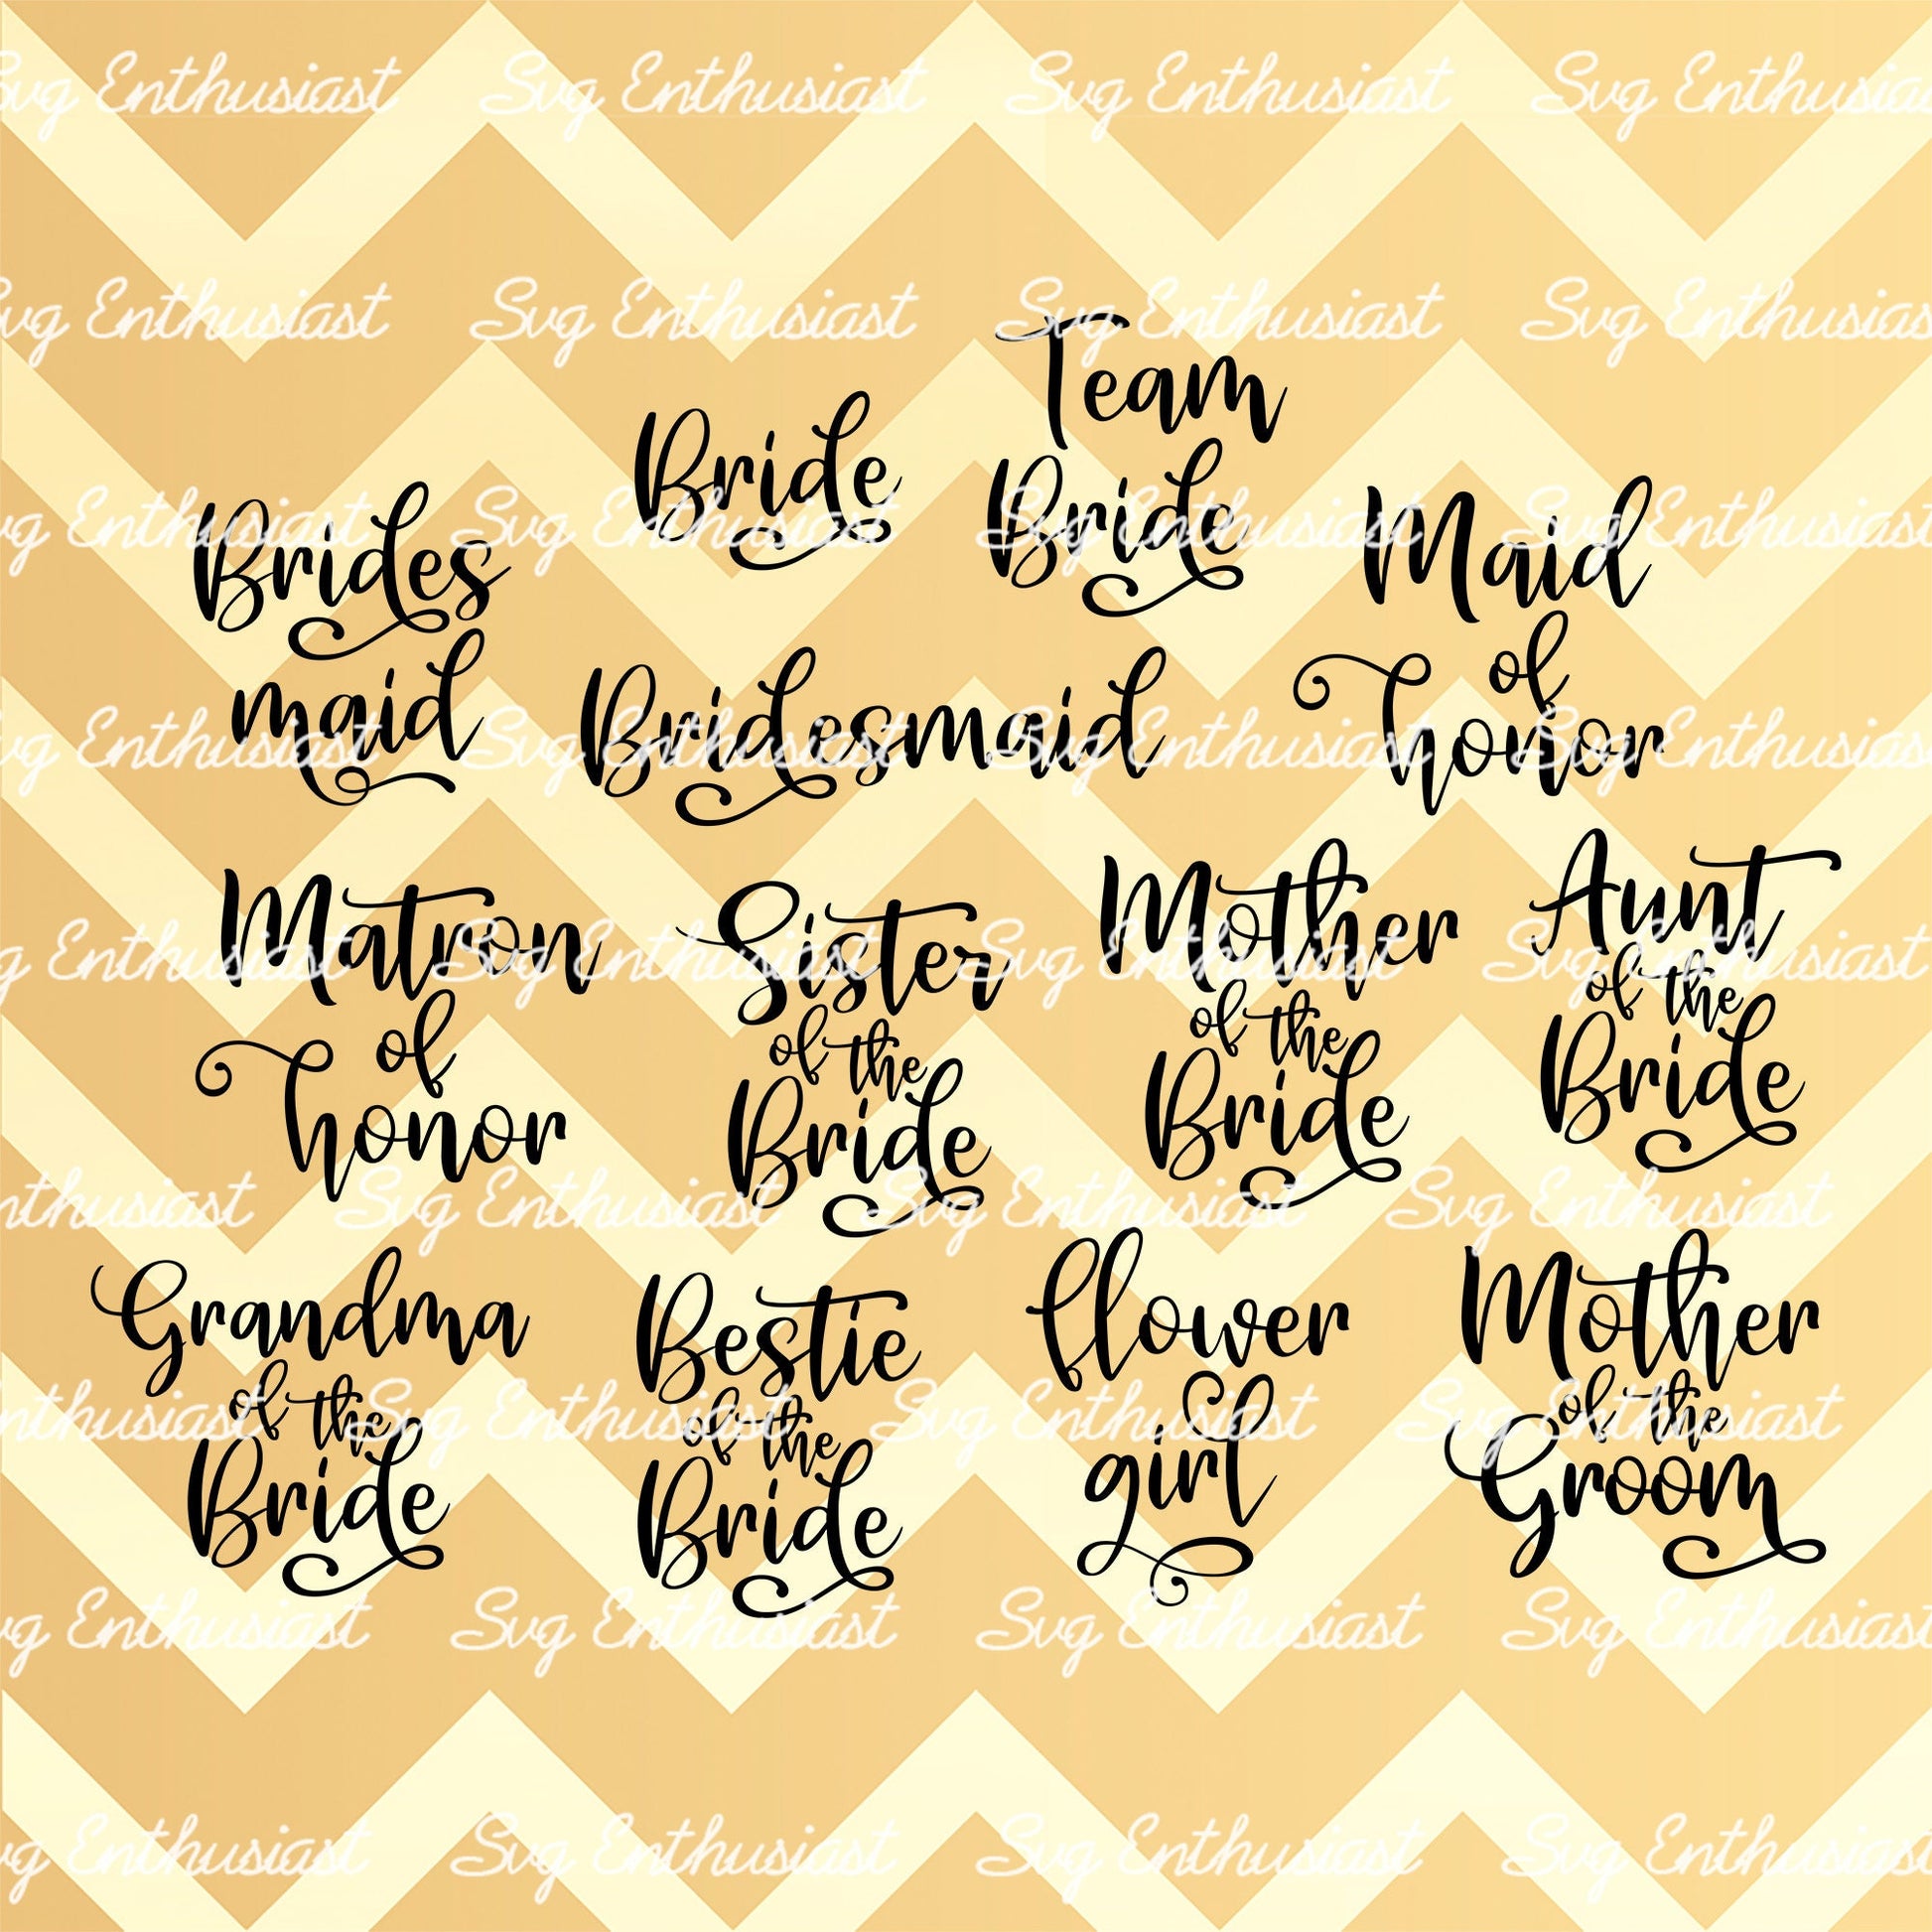 Svg Enthusiast Svg Enthusiast Svg Enthusiast Svg Enthusiast
Svg Enthusiast Svg Enthusiast Svg Enthusiast Svg Enthusiast
Brides
maid
Bride
Team
Bride
Maid
of
honor
Svg Enthusiast Svg Enthusiast Svg Enthusiast Svg Enthusiast
Bridesmaid
Svg Enthusiast Svg Enthusiast Svg Enthusiast Svg Enthusiast
Matron
of
honor
Sister
of the
Bride
Mother
of the
Bride
Aunt
of the
Bride
Svg Enthusiast Svg Enthusiast Svg Enthusiast Svg Enthusiast
Enthusiast Svg Enthusiast Svg Enthusiast Svg Enthusiast
Grandma
of the
Bride
Bestie
of the
Bride
flower
girl
Mother
of the
Groom
Enthusiast Svg Enthusiast Svg Enthusiast Svg Enthusiast
Svg Enthusiast Svg Enthusiast Svg Enthusiast Svg Enthusiast
Svg Enthusiast Svg Enthusiast Svg Enthusiast Svg Enthusiast